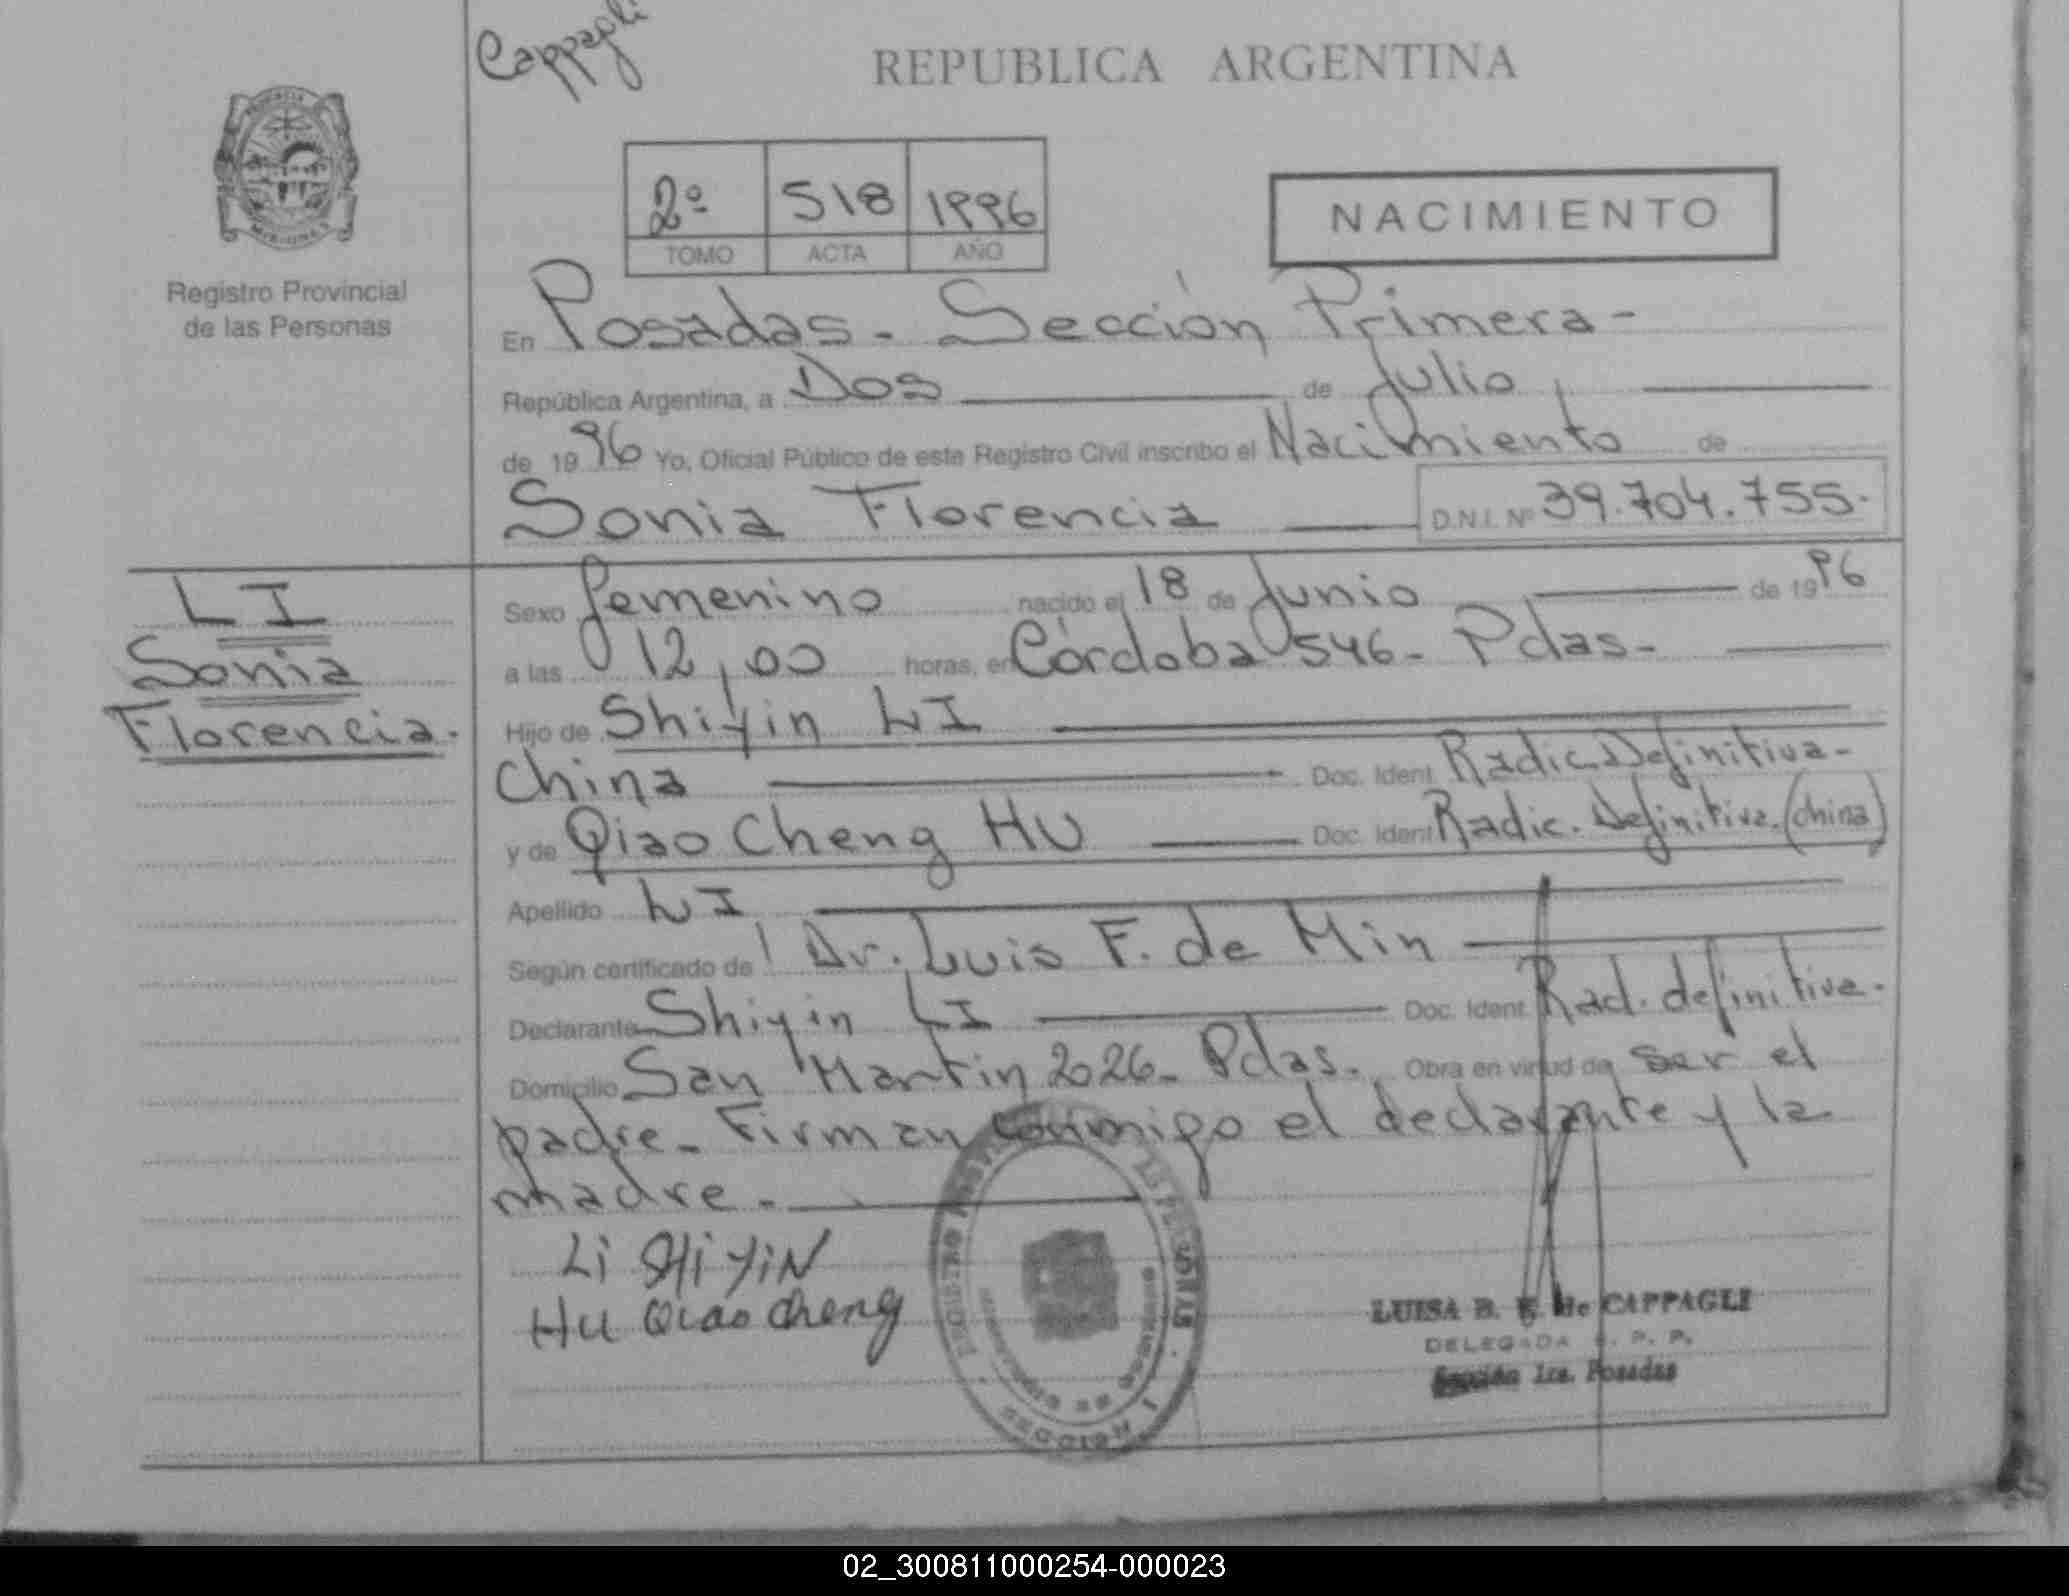 Cappagli
REPUBLICA ARGENTINA
PROVINCIA
MISIONES
Registro Provincial
de las Personas
2º 518 1996
TOMO ACTA AÑO
NACIMIENTO
En Posadas - Sección Primera -
República Argentina, a Dos de Julio,
de 1996 Yo, Oficial Público de este Registro Civil inscribo el Nacimiento de
Sonia Florencia D.N.I. Nº 39.704.755.
LI
Sonia
Florencia.
Sexo femenino nacido el 18 de Junio de 1996
a las 12,00 horas, en Córdoba 546 - Pdas -
Hijo de Shiyin LI
China Doc. Ident. Radic. Definitiva -
y de Qiao Cheng HU Doc. Ident. Radic. Definitiva. (China)
Apellido LI
Según certificado de Dr. Luis F. de Min
Declarante Shiyin LI Doc. Ident. Rad. definitiva.
Domicilio San Martin 2026 - Pdas. Obra en virtud de ser el
padre - Firman conmigo el declarante y la
madre.
Li SHi YiN
Hu Qiao cheng
SECCION 1
LUISA B. de CAPPAGLI
DELEGADA R. P. P.
Sección 1ra. Posadas
02_300811000254-000023